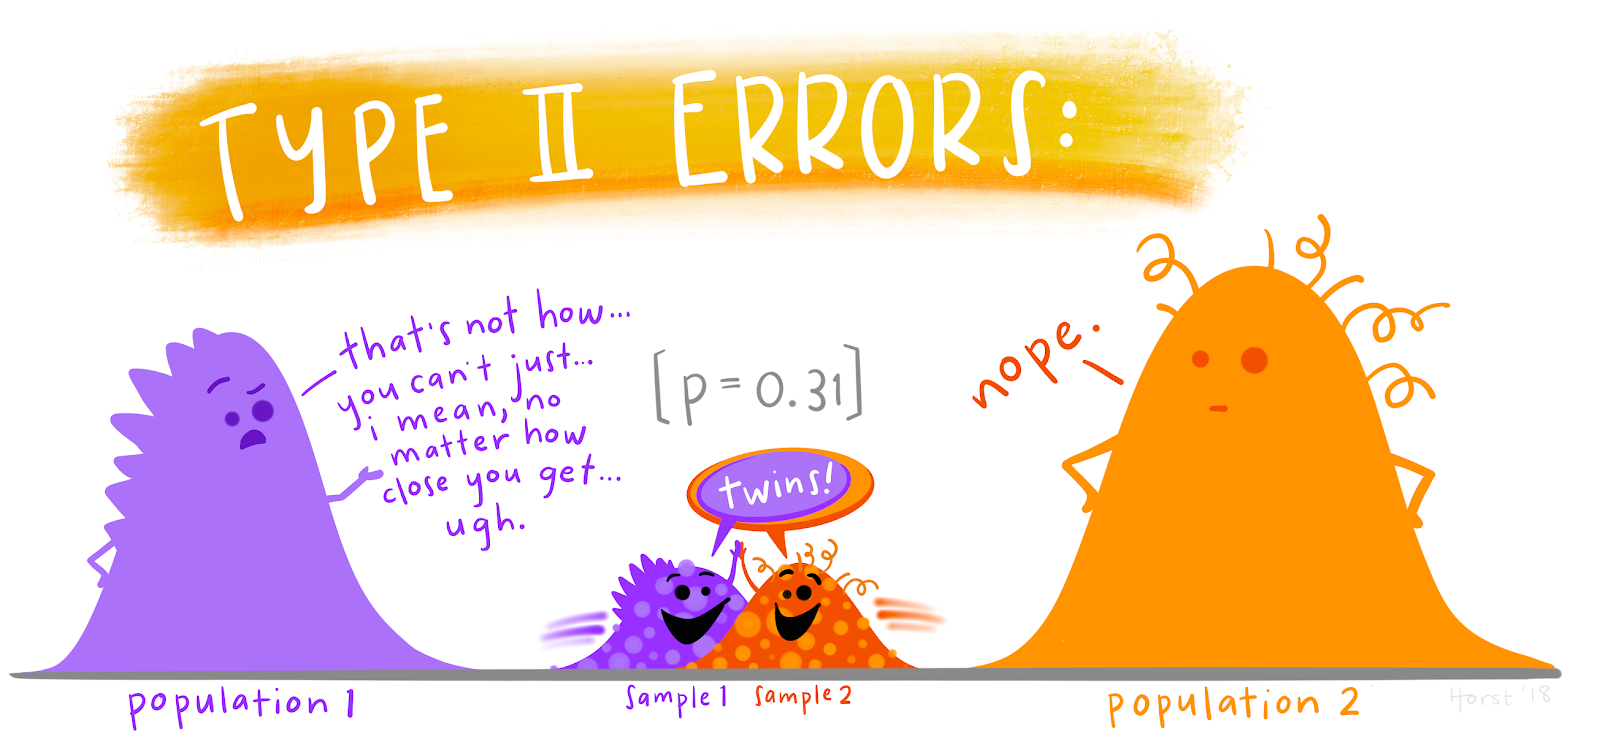 TYPE II ERRORS:
that's not how...
you can't just...
i mean, no
matter how
close you get...
ugh.
[p = 0.31]
nope.
twins!
population 1
sample 1
sample 2
population 2
Horst '18